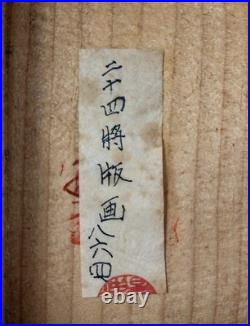 二十四將版画八六四